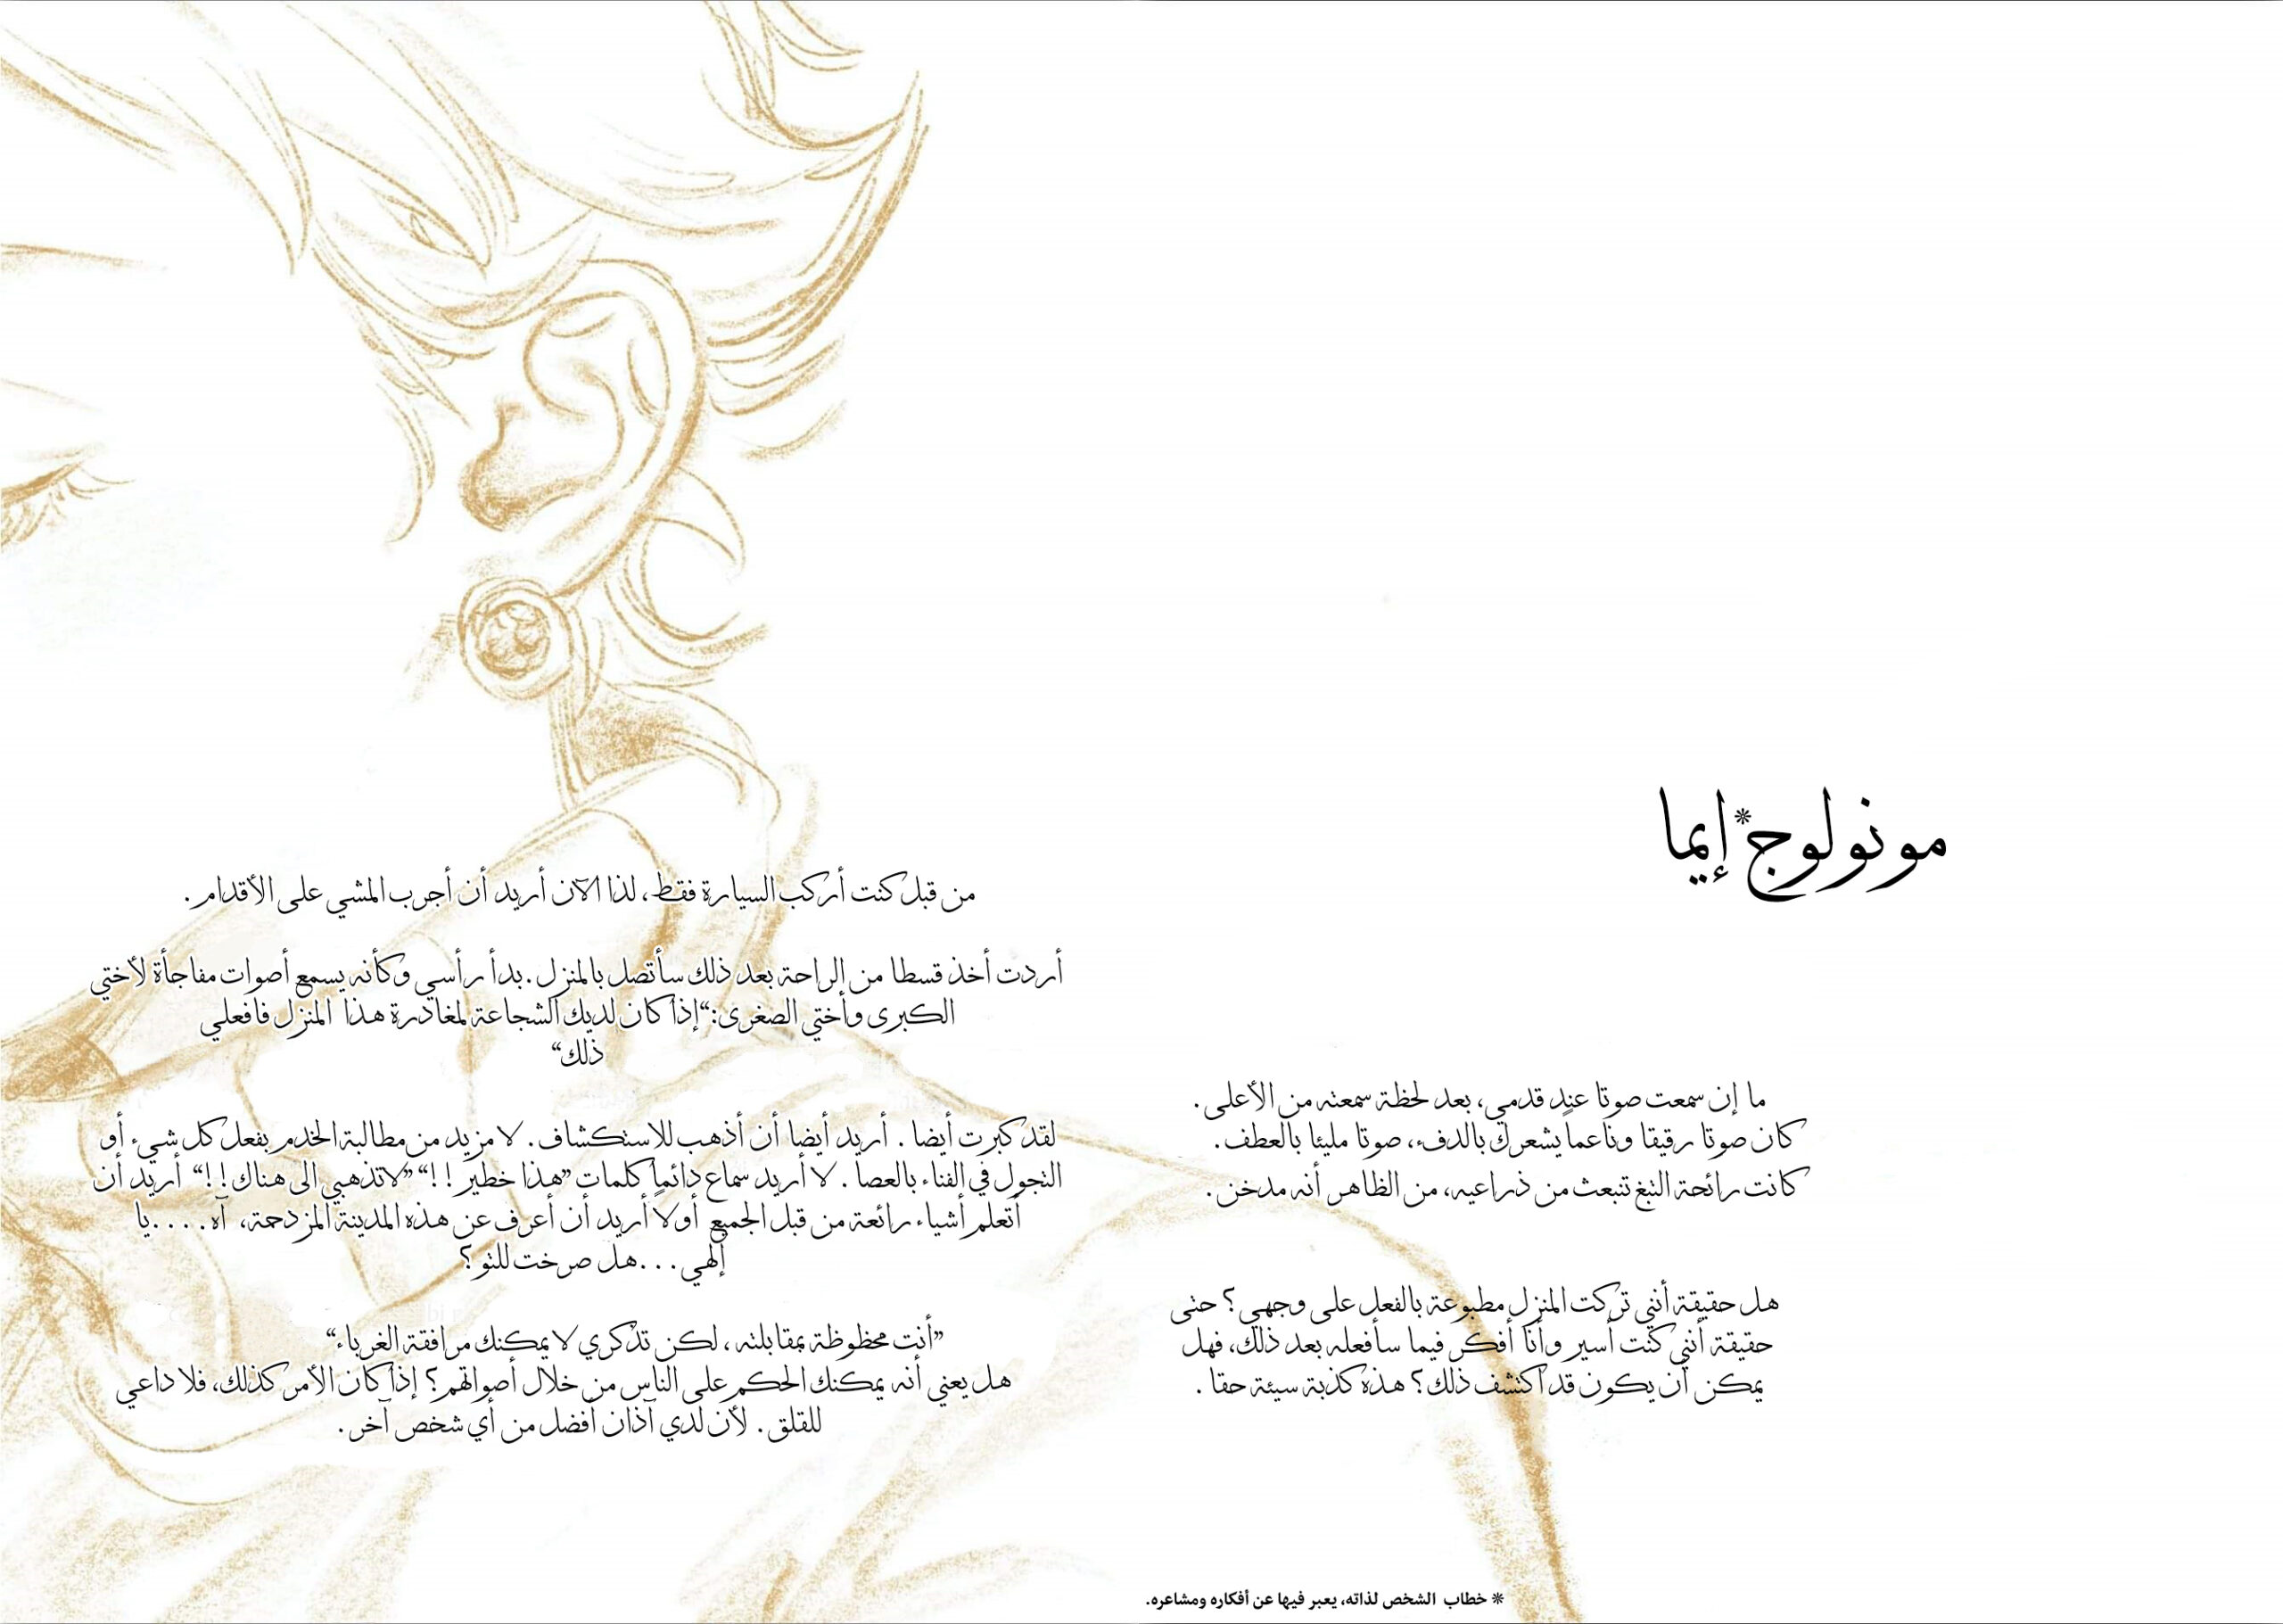 مونولوج* إيما
ما إن سمعت صوتا عند قدمي، بعد لحظة سمعته من الأعلى.
كان صوتا رقيقا وناعما يشعرك بالدفء، صوتا مليئا بالعطف.
كانت رائحة التبغ تنبعث من ذراعيه، من الظاهر أنه مدخن.
هل حقيقة أنني تركت المنزل مطبوعة بالفعل على وجهي؟ حتى
حقيقة أنني كنت أسير وأنا أفكر فيما سأفعله بعد ذلك، فهل
يمكن أن يكون قد اكتشف ذلك؟ هذه كذبة سيئة حقا .
* خطاب الشخص لذاته، يعبر فيها عن أفكاره ومشاعره.
من قبل كنت أركب السيارة فقط، لذا الآن أريد أن أجرب المشي على الأقدام.
أردت أخذ قسطا من الراحة بعد ذلك سأتصل بالمنزل. بدأ رأسي وكأنه يسمع أصوات مفاجأة لأختي
الكبرى وأختي الصغرى:“إذا كان لديك الشجاعة لمغادرة هذا المنزل فافعلي
ذلك“
لقد كبرت أيضا . أريد أيضا أن أذهب للاستكشاف. لا مزيد من مطالبة الخدم بفعل كل شيء أو
التجول في الفناء بالعصا . لا أريد سماع دائماً كلمات ”هذا خطير!!“ ”لاتذهبي الى هناك!!“ أريد أن
أتعلم أشياء رائعة من قبل الجميع أولا أريد أن أعرف عن هذه المدينة المزدحمة، آه....يا
إلهي...هل صرخت للتو؟
”أنت محظوظة بمقابلته ، لكن تذكري لا يمكنك مرافقة الغرباء“
هل يعني أنه يمكنك الحكم على الناس من خلال أصواتهم؟ إذا كان الأمر كذلك، فلا داعي
للقلق. لأن لدي آذان أفضل من أي شخص آخر.